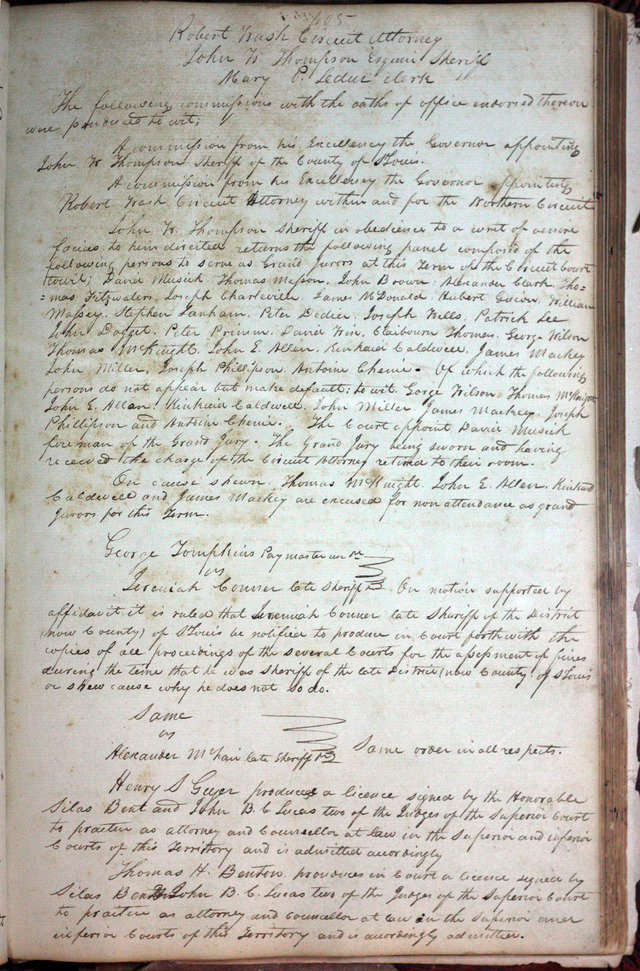 405
Robert Wash Circuit Attorney
John W Thompson Esquire Sheriff
Mary P. Leduc Clerk
The following commissions with the oaths of office endorsed thereon
were produced to wit;
A commission from his Excellency the Governor appointing
John W Thompson Sheriff of the County of St Louis.
A commission from his Excellency the Governor appointing
Robert Wash Circuit Attorney within and for the Northern Circuit
John W. Thompson Sheriff in obedience to a writ of venire
facias to him directed returns the following panel composed of the
following persons to serve as Grand Jurors at this Term of the Circuit Court
towit; David Musick Thomas Masson. John Brown. Alexander Clark. Tho-
=mas Fitzwaters. Joseph Charleville. James McDonald. Hubert Guion. William
Massey. Stephen Lanham. Peter Didier. Joseph Wells. Patrick Lee
John Dagget. Peter Primm. David Clairbourn Thomas. George Wilson
Thomas McKnight. John E. Allen. Kinkaid Caldwell. James Mackey
John Miller. Joseph Phillipson Antoine Chenie. Of which the following
persons do not appear but make default; to wit. Gorge Wilson. Thomas McKnight
John E. Allan. Kinkaid Caldwell. John Miller. James Mackey Joseph
Phillipson and Antoine Chenie. The Court appoint David Musick
foreman of the Grand Jury. The Grand Jury being sworn and having
received the charge of the Circuit Attorney retired to their room.
On cause shewn. Thomas McKnight. John E. Allen. Kinkaid
Caldwell and James Mackey are excused for non attendance as grand
Jurors for this Term.
George Tompkins Paymaster
vs
Jeremiah Conner late Sheriff On motion supported by
affidavit it is ruled that Jeremiah Conner late Sheriff of the District
(now County) of St Louis be notified to produce in Court forthwith the
copies of all proceedings of the several Courts for the assessment of fines
during the time that he was Sheriff of the late District (now County) of St Louis
or shew cause why he does not so do.
Same
vs
Alexander McNair late Sheriff Same order in all respects.
Henry S Geyer produces a licence signed by the Honorable
Silas Bent and John B. C Lucas two of the Judges of the Superior Court
to practice as attorney and Counsellor at law in the Superior and inferior
Courts of this Territory and is admitted accordingly
Thomas H. Benton produces in Court a licence signed by
Silas Bent John B. C. Lucas two of the Judges of the Superior Court
to practice as attorney and councellor at law in the Superior and
inferior Courts of this Territory and is accordingly admitted.